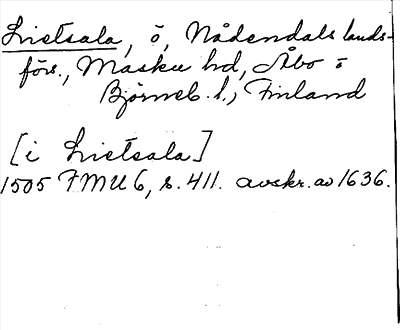 Lietsala, ö, Nådendals lands-
förs., Masku hd, Åbo o
Björneb. l., Finland
[i Lietsala]
1505 FMU 6, s. 411. avskr. av 1636.